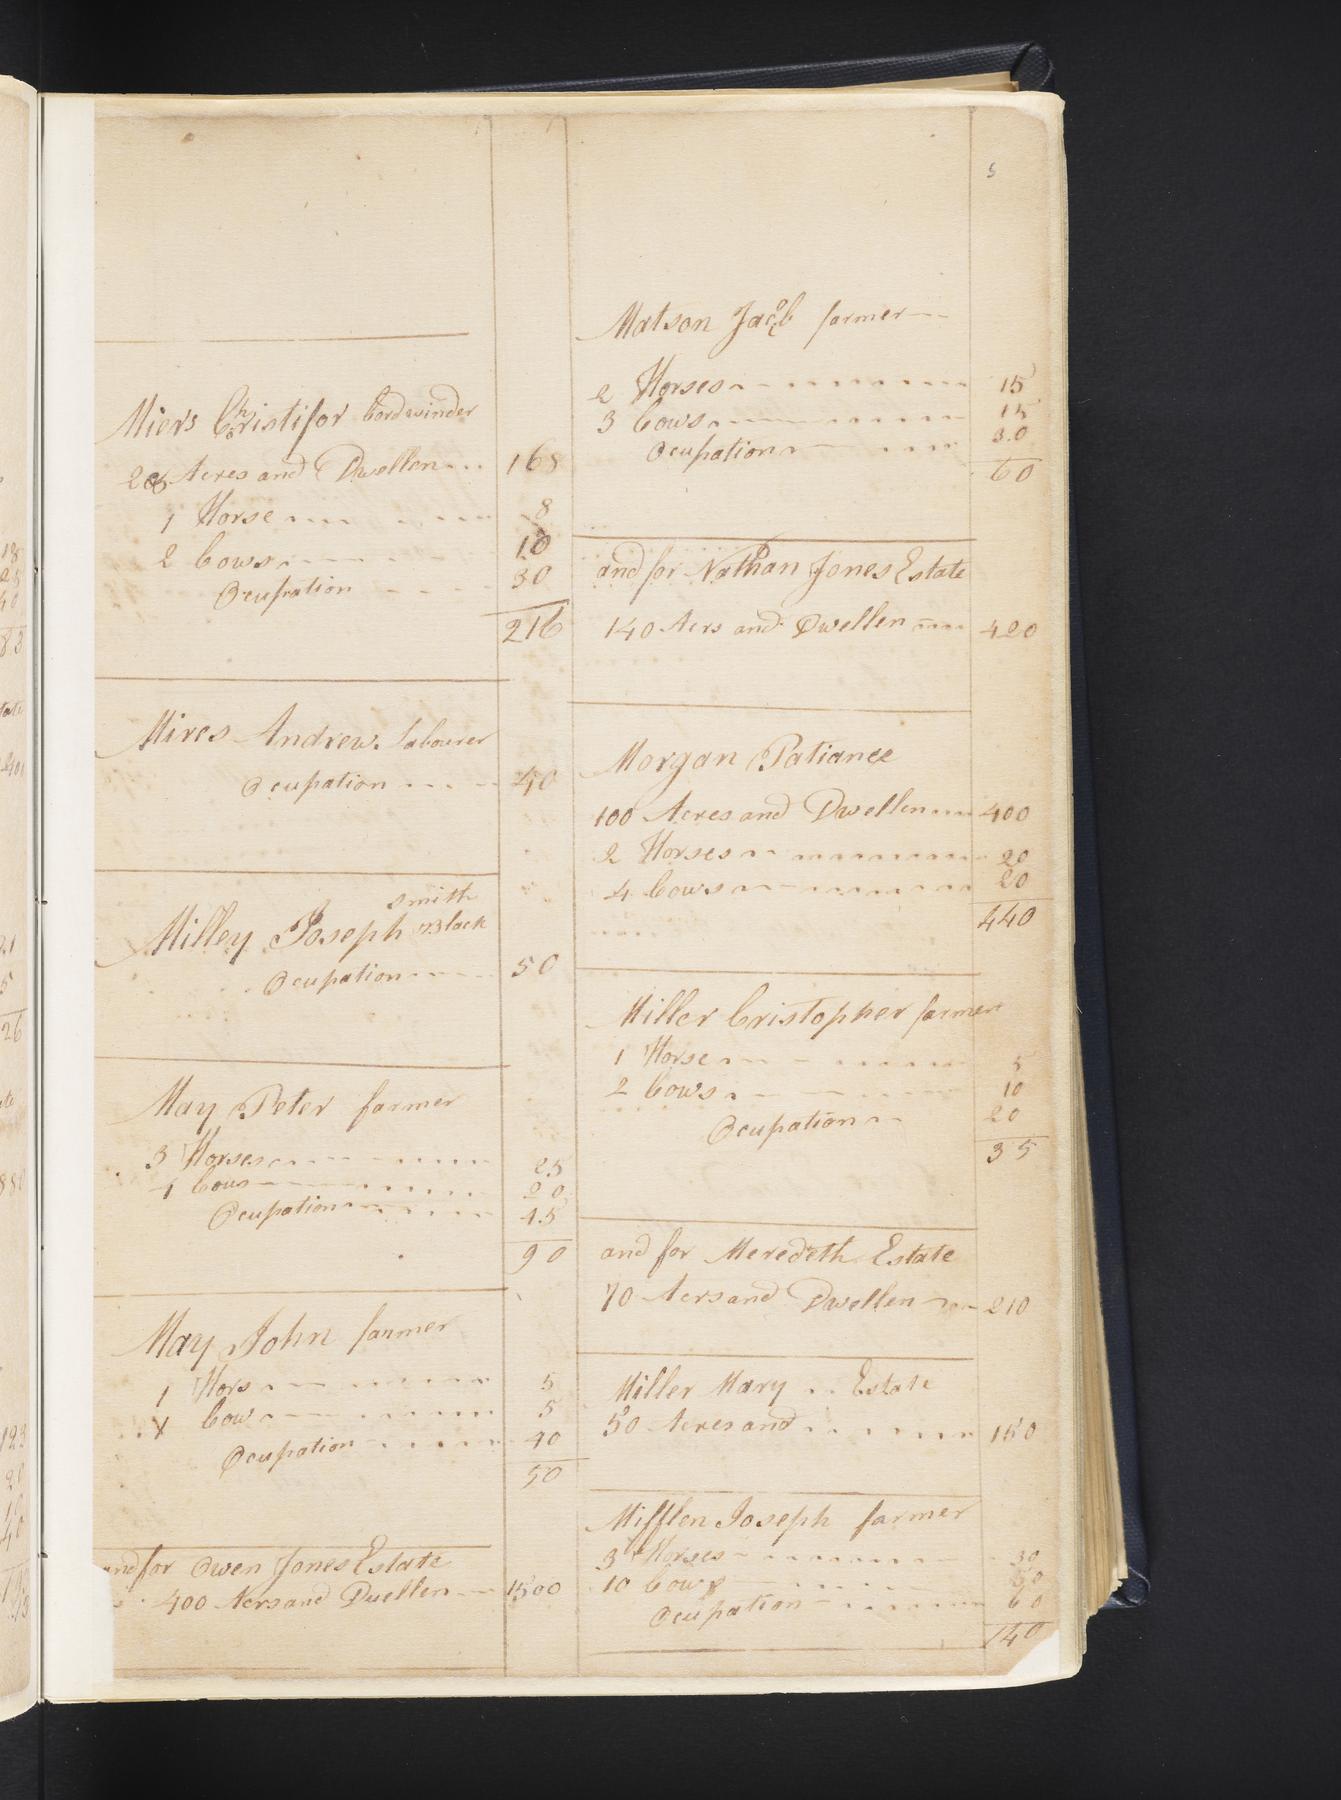 5
Miers Christifor Cordwinder
28 Acres and Dwellen 168
1 Horse 8
2 Cows 10
Ocupation 30
216
Mires Andrew Labourer
Ocupation 40
smith
Milley Joseph Black
Ocupation 50
May Peter farmer
3 Horses 25
4 Cows 20
Ocupation 45
90
May John farmer
1 Hors 5
1 Cow 5
Ocupation 40
50
and for Owen Jones Estate
400 Acrs and Duellen 1500
Matson Jacob farmer
2 Horses 15
3 Cows 15
Ocupation 30
60
and for Nathan Jones Estate
140 Acrs and Dwellen 420
Morgan Patiance
100 Acres and Dwellen 400
2 Horses 20
4 Cows 20
440
Miller Cristopher farmer
1 Horse 5
2 Cows 10
Ocupation 20
35
and for Meredeth Estate
70 Acrs and Dwellen 210
Miller Mary Estate
50 Acres and 150
Mifflen Joseph farmer
3 Horses 30
10 Cows 50
Ocupation 60
140